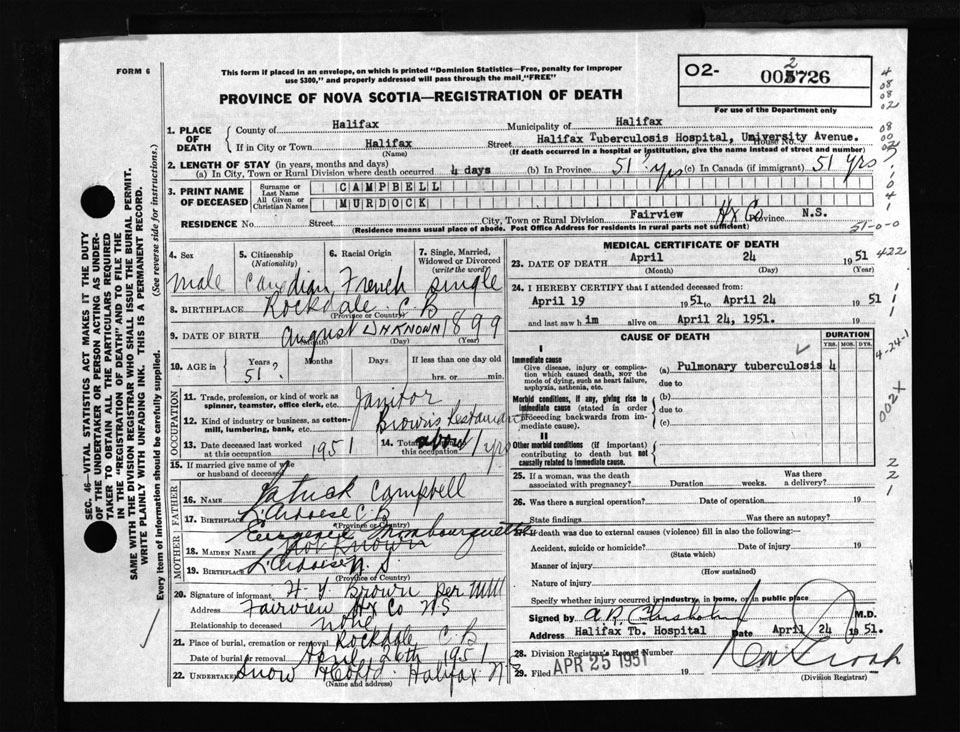 FORM 6
This form if placed in an envelope, on which is printed "Dominion Statistics—Free, penalty for improper
use $300," and properly addressed will pass through the mail "FREE"
PROVINCE OF NOVA SCOTIA—REGISTRATION OF DEATH
O2-
2
005726
For use of the Department only
1. PLACE OF DEATH
County of Halifax Municipality of Halifax
If in City or Town Halifax Street Halifax Tuberculosis Hospital, University Avenue. House No.
(Name) (If death occurred in a hospital or institution, give the name instead of street and number)
2. LENGTH OF STAY (in years, months and days)
(a) In City, Town or Rural Division where death occurred 4 days (b) In Province 51? yrs (c) In Canada (if immigrant) 51 yrs
3. PRINT NAME OF DECEASED
Surname or Last Name CAMPBELL
All Given or Christian Names MURDOCK
RESIDENCE No. Street City, Town or Rural Division Fairview Hx Co Province N.S.
(Residence means usual place of abode. Post Office Address for residents in rural parts not sufficient)
51-0-0
4. Sex male
5. Citizenship (Nationality) Canadian
6. Racial Origin French
7. Single, Married, Widowed or Divorced (write the word) single
8. BIRTHPLACE Rockdale C B
(Province or Country)
9. DATE OF BIRTH August UNKNOWN 1899
(Month) (Day) (Year)
10. AGE in Years 51? Months Days If less than one day old
hrs. or min.
OCCUPATION
11. Trade, profession, or kind of work as spinner, teamster, office clerk, etc. Janitor
12. Kind of industry or business, as cotton-mill, lumbering, bank, etc. Brown's Restaurant
13. Date deceased last worked at this occupation 1951
14. Total this occupation 1 yrs
15. If married give name of wife or husband of deceased
FATHER
16. Name Patrick Campbell
17. Birthplace L'Ardoise C.B
(Province or Country)
MOTHER
18. Maiden Name Eugenie Mombourquette
not known
19. Birthplace L'Ardoise N.S.
(Province or Country)
20. Signature of informant H. Y. Brown per MM
Address Fairview Hx Co N S
Relationship to deceased none
21. Place of burial, cremation or removal Rockdale C B
Date of burial or removal April 26th 1951
22. Undertaker Snow & Co Ltd. Halifax N S
(Name and address)
MEDICAL CERTIFICATE OF DEATH
23. DATE OF DEATH April 24 1951
(Month) (Day) (Year)
24. I HEREBY CERTIFY that I attended deceased from:
April 19 1951 to April 24 1951
and last saw him alive on April 24, 1951.
CAUSE OF DEATH
DURATION
YRS. MOS. DYS.
I
Immediate cause
Give disease, injury or complication which caused death, not the mode of dying, such as heart failure, asphyxia, asthenia, etc.
(a) Pulmonary tuberculosis 4
due to
Morbid conditions, if any, giving rise to immediate cause (stated in order proceeding backwards from immediate cause).
(b)
due to
(c)
II
Other morbid conditions (if important) contributing to death but not causally related to immediate cause.
25. If a woman, was the death associated with pregnancy? Duration weeks Was there a delivery?
26. Was there a surgical operation? Date of operation 19
State findings Was there an autopsy?
27. If death was due to external causes (violence) fill in also the following:
Accident, suicide or homicide? Date of injury 19
(State which)
Manner of injury
(How sustained)
Nature of injury
Specify whether injury occurred in industry, in home, or in public place
Signed by A.R. Chisholm M.D.
Address Halifax Tb. Hospital Date April 24 1951.
28. Division Registrar's Record Number
29. Filed APR 25 1951 19
(Division Registrar)
SEC. 46—VITAL STATISTICS ACT MAKES IT THE DUTY
OF THE UNDERTAKER OR PERSON ACTING AS UNDER-
TAKER TO OBTAIN ALL THE PARTICULARS REQUIRED
IN THE "REGISTRATION OF DEATH" AND TO FILE THE
SAME WITH THE DIVISION REGISTRAR WHO SHALL ISSUE THE BURIAL PERMIT.
WRITE PLAINLY WITH UNFADING INK. THIS IS A PERMANENT RECORD.
Every item of information should be carefully supplied. (See reverse side for instructions.)
422
4-24-1
002X
221